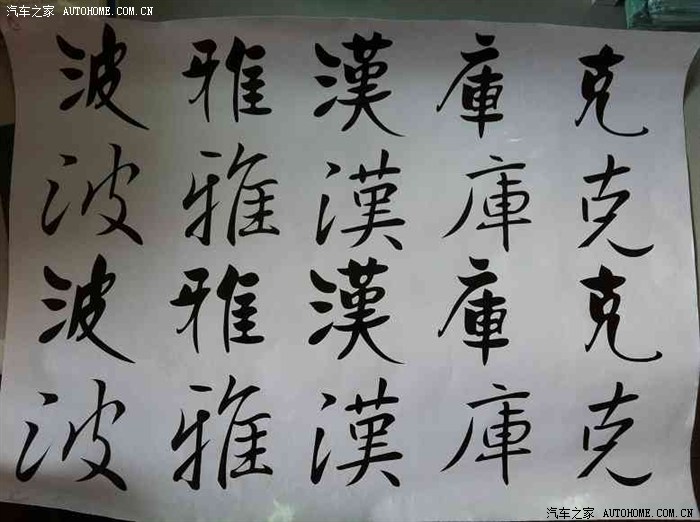 汽车之家 AUTOHOME.COM.CN
波雅漢庫克
波雅漢庫克
波雅漢庫克
波雅漢庫克
汽车之家 AUTOHOME.COM.CN